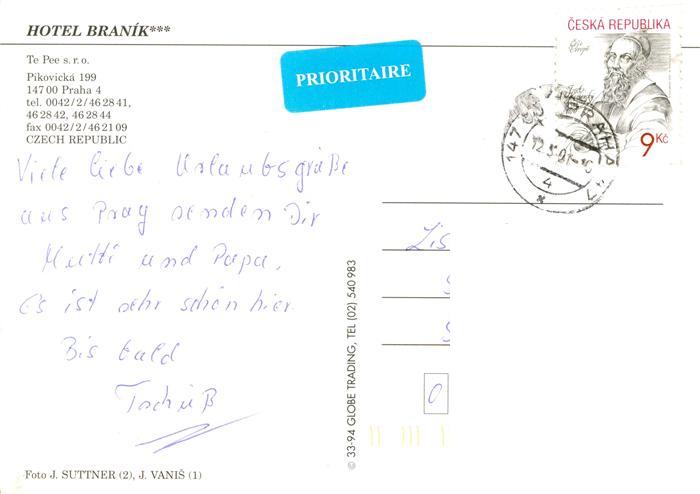 HOTEL BRANÍK***
Te Pee s. r. o.
Pikovická 199
147 00 Praha 4
tel. 0042/2/46 28 41,
46 28 42, 46 28 44
fax 0042/2/46 21 09
CZECH REPUBLIC
PRIORITAIRE
ČESKÁ REPUBLIKA
9 Kč
147 PRAHA 47
4
Viele liebe Urlaubsgrüße
aus Prag senden Dir
Mutti und Papa.
Es ist sehr schön hier.
Bis bald
Tschüß
© 33-94 GLOBE TRADING, TEL (02) 540 983
Lis
0
Foto J. SUTTNER (2), J. VANIŠ (1)